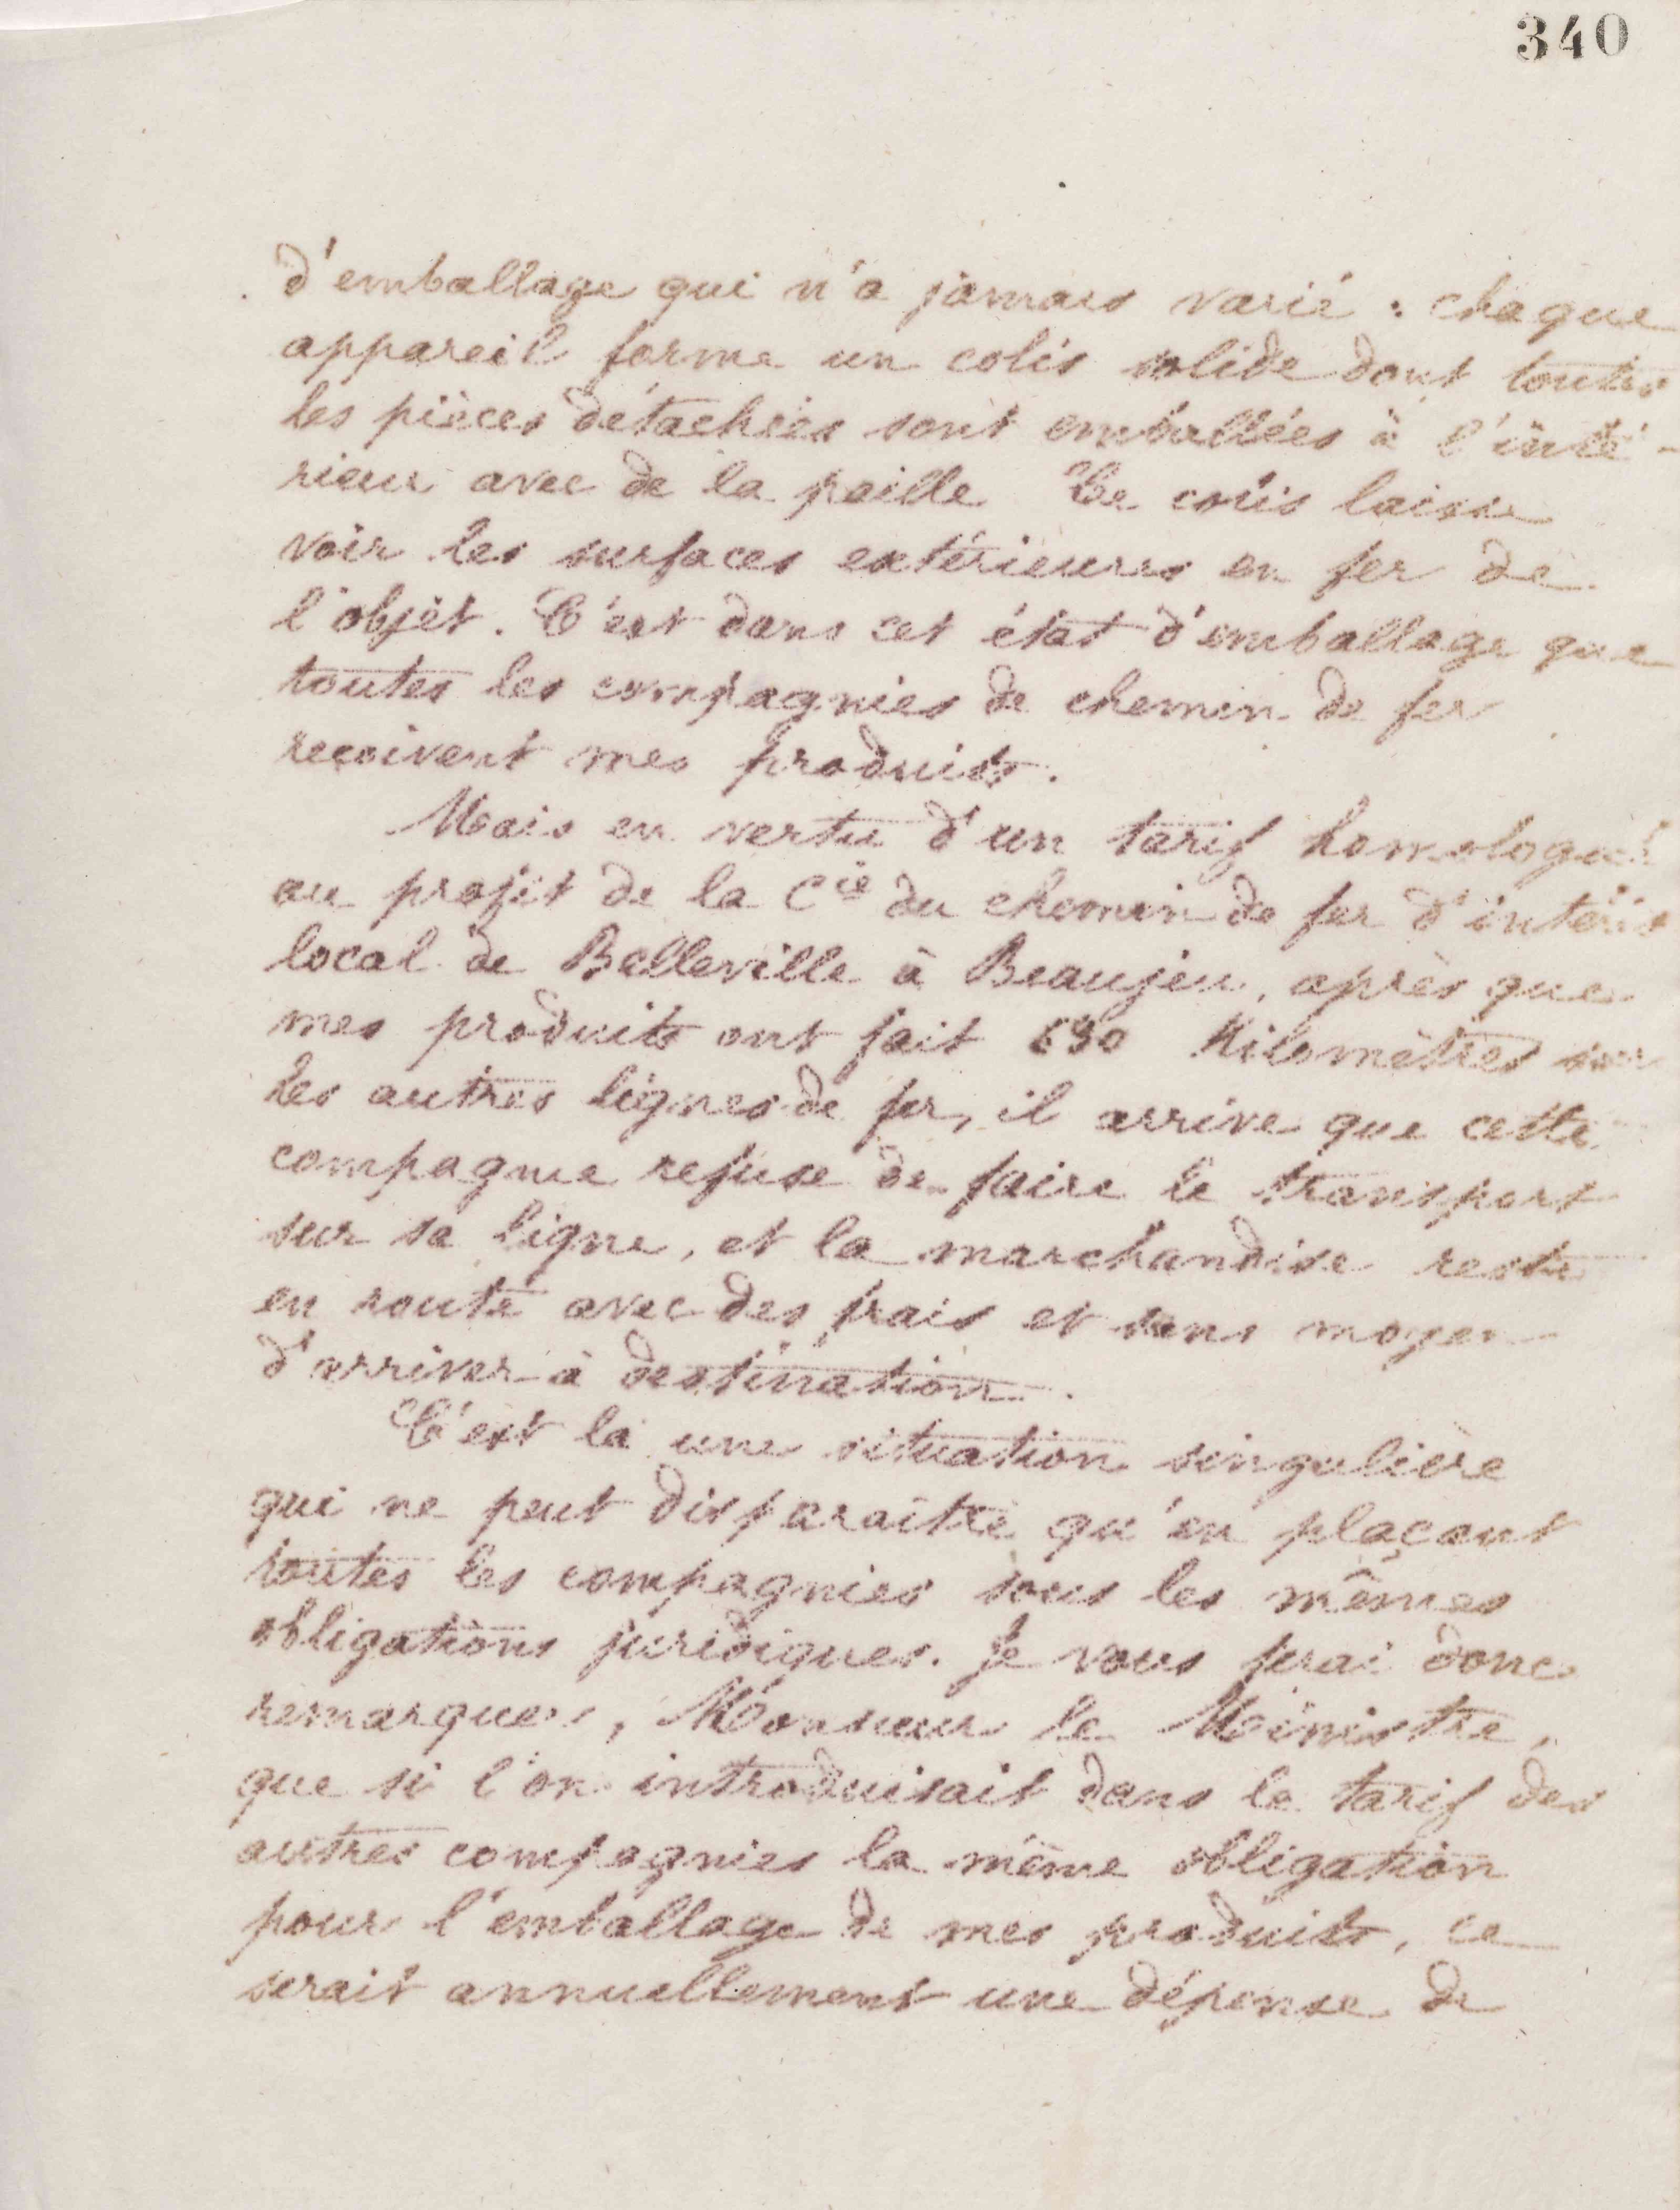 340
d'emballage qui n'a jamais varié : chaque
appareil forme un colis solide dont toutes
les pièces détachées sont emballées à l'inté-
rieur avec de la paille Ce colis laisse
voir les surfaces extérieures en fer de
l'objet. C'est dans cet état d'emballage que
toutes les compagnies de chemin de fer
reçoivent mes produits.
Mais en vertu d'un tarif homologué
au profit de la Cie du chemin de fer d'intérêt
local de Belleville à Beaujeu, après que
mes produits ont fait 690 Kilomètres sur
les autres lignes de fer, il arrive que cette
compagnie refuse de faire le transport
sur sa ligne, et la marchandise reste
en route avec des frais et sans moyen
d'arriver à destination.
C'est là une situation singulière
qui ne peut disparaître qu'en plaçant
toutes les compagnies sous les mêmes
obligations juridiques. Je vous ferai donc
remarquer, Monsieur le Ministre,
que si l'on introduisait dans le tarif des
autres compagnies la même obligation
pour l'emballage de mes produits, ce
serait annuellement une dépense de